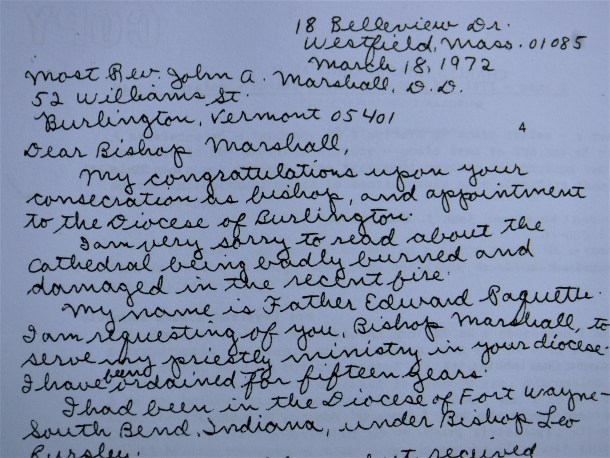 18 Belleview Dr.
Westfield, Mass. 01085
March 18, 1972
Most Rev. John A. Marshall, D.D.
52 Williams St.
Burlington, Vermont 05401
4
Dear Bishop Marshall,
My congratulations upon your
consecration as bishop, and appointment
to the Diocese of Burlington.
I am very sorry to read about the
Cathedral being badly burned and
damaged in the recent fire.
My name is Father Edward Paquette.
I am requesting of you, Bishop Marshall, to
serve my priestly ministry in your diocese.
I have being ordained for fifteen years.
I had been in the Diocese of Fort Wayne-
South Bend, Indiana, under Bishop Leo
Pursley.
received